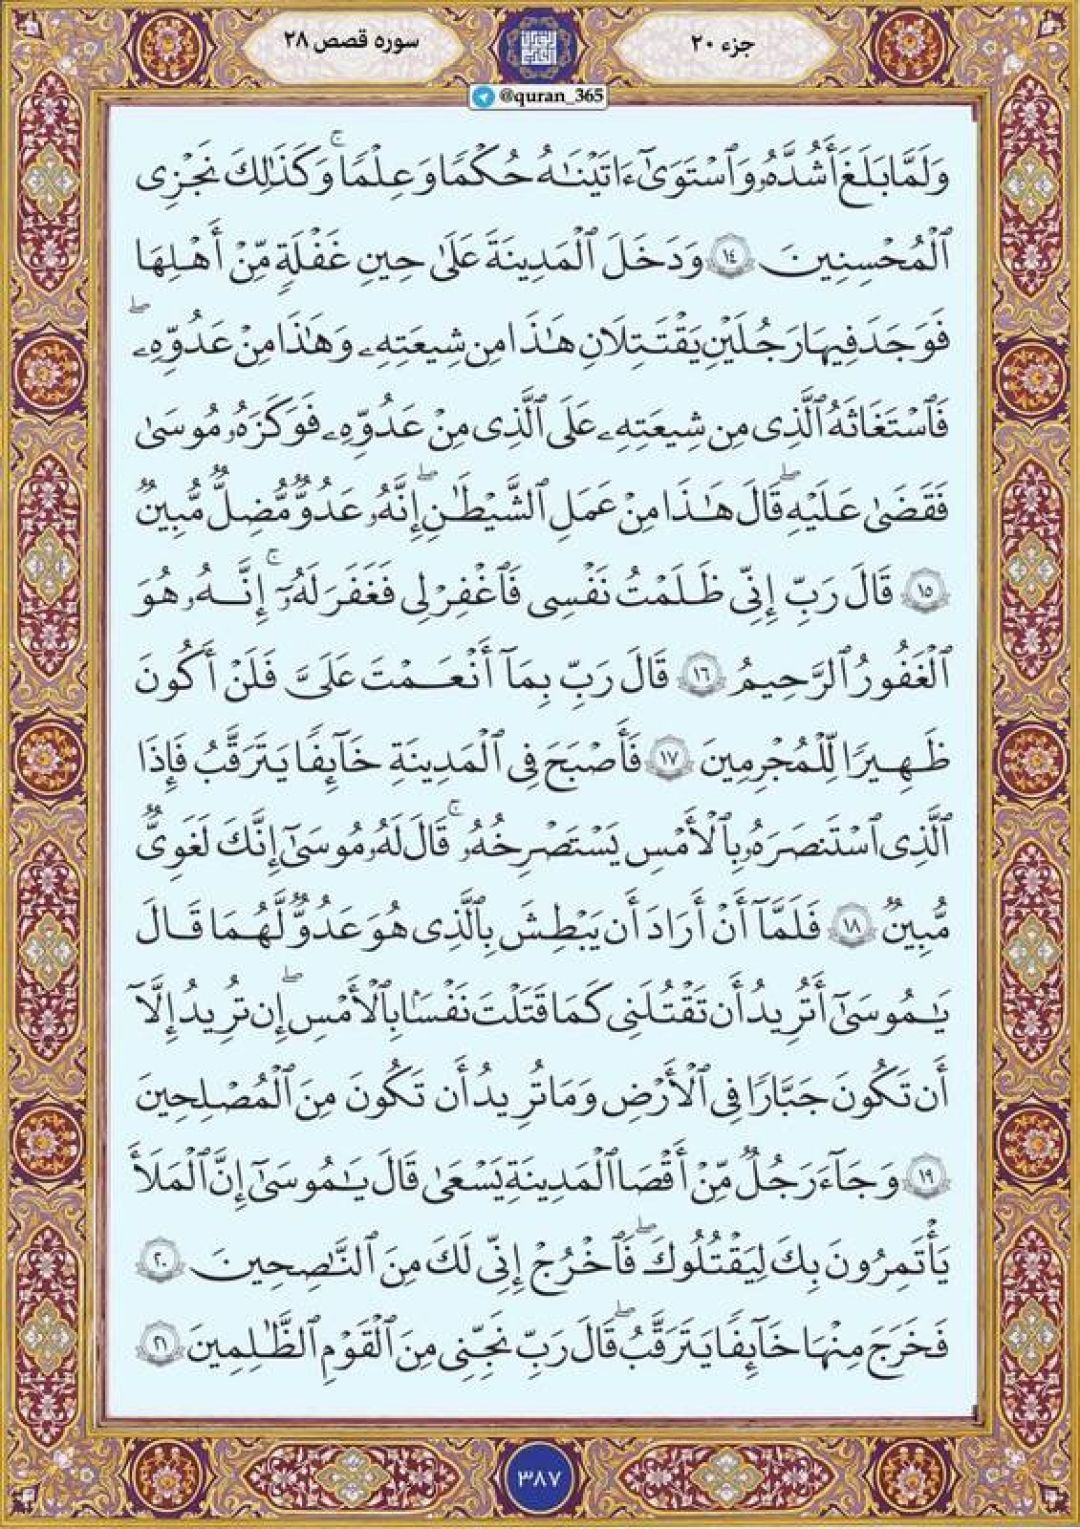 جزء ۲۰
سوره قصص ۲۸
@quran_365
وَلَمَّا بَلَغَ أَشُدَّهُۥ وَٱسْتَوَىٰٓ ءَاتَيْنَـٰهُ حُكْمًا وَعِلْمًا ۚ وَكَذَٰلِكَ نَجْزِى
ٱلْمُحْسِنِينَ ١٤ وَدَخَلَ ٱلْمَدِينَةَ عَلَىٰ حِينِ غَفْلَةٍ مِّنْ أَهْلِهَا
فَوَجَدَ فِيهَا رَجُلَيْنِ يَقْتَتِلَانِ هَـٰذَا مِن شِيعَتِهِۦ وَهَـٰذَا مِنْ عَدُوِّهِۦ ۖ
فَٱسْتَغَـٰثَهُ ٱلَّذِى مِن شِيعَتِهِۦ عَلَى ٱلَّذِى مِنْ عَدُوِّهِۦ فَوَكَزَهُۥ مُوسَىٰ
فَقَضَىٰ عَلَيْهِ ۖ قَالَ هَـٰذَا مِنْ عَمَلِ ٱلشَّيْطَـٰنِ ۖ إِنَّهُۥ عَدُوٌّ مُّضِلٌّ مُّبِينٌ
١٥ قَالَ رَبِّ إِنِّى ظَلَمْتُ نَفْسِى فَٱغْفِرْ لِى فَغَفَرَ لَهُۥٓ ۚ إِنَّـهُۥ هُوَ
ٱلْغَفُورُ ٱلرَّحِيمُ ١٦ قَالَ رَبِّ بِمَآ أَنْعَمْتَ عَلَىَّ فَلَنْ أَكُونَ
ظَهِيرًا لِّلْمُجْرِمِينَ ١٧ فَأَصْبَحَ فِى ٱلْمَدِينَةِ خَآئِفًا يَتَرَقَّبُ فَإِذَا
ٱلَّذِى ٱسْتَنصَرَهُۥ بِٱلْأَمْسِ يَسْتَصْرِخُهُۥ ۚ قَالَ لَهُۥ مُوسَىٰٓ إِنَّكَ لَغَوِىٌّ
مُّبِينٌ ١٨ فَلَمَّآ أَنْ أَرَادَ أَن يَبْطِشَ بِٱلَّذِى هُوَ عَدُوٌّ لَّهُمَا قَالَ
يَـٰمُوسَىٰٓ أَتُرِيدُ أَن تَقْتُلَنِى كَمَا قَتَلْتَ نَفْسًۢا بِٱلْأَمْسِ ۖ إِن تُرِيدُ إِلَّآ
أَن تَكُونَ جَبَّارًا فِى ٱلْأَرْضِ وَمَا تُرِيدُ أَن تَكُونَ مِنَ ٱلْمُصْلِحِينَ
١٩ وَجَآءَ رَجُلٌ مِّنْ أَقْصَا ٱلْمَدِينَةِ يَسْعَىٰ قَالَ يَـٰمُوسَىٰٓ إِنَّ ٱلْمَلَأَ
يَأْتَمِرُونَ بِكَ لِيَقْتُلُوكَ ۖ فَٱخْرُجْ إِنِّى لَكَ مِنَ ٱلنَّـٰصِحِينَ ٢٠
فَخَرَجَ مِنْهَا خَآئِفًا يَتَرَقَّبُ ۖ قَالَ رَبِّ نَجِّنِى مِنَ ٱلْقَوْمِ ٱلظَّـٰلِمِينَ ٢١
۳۸۷